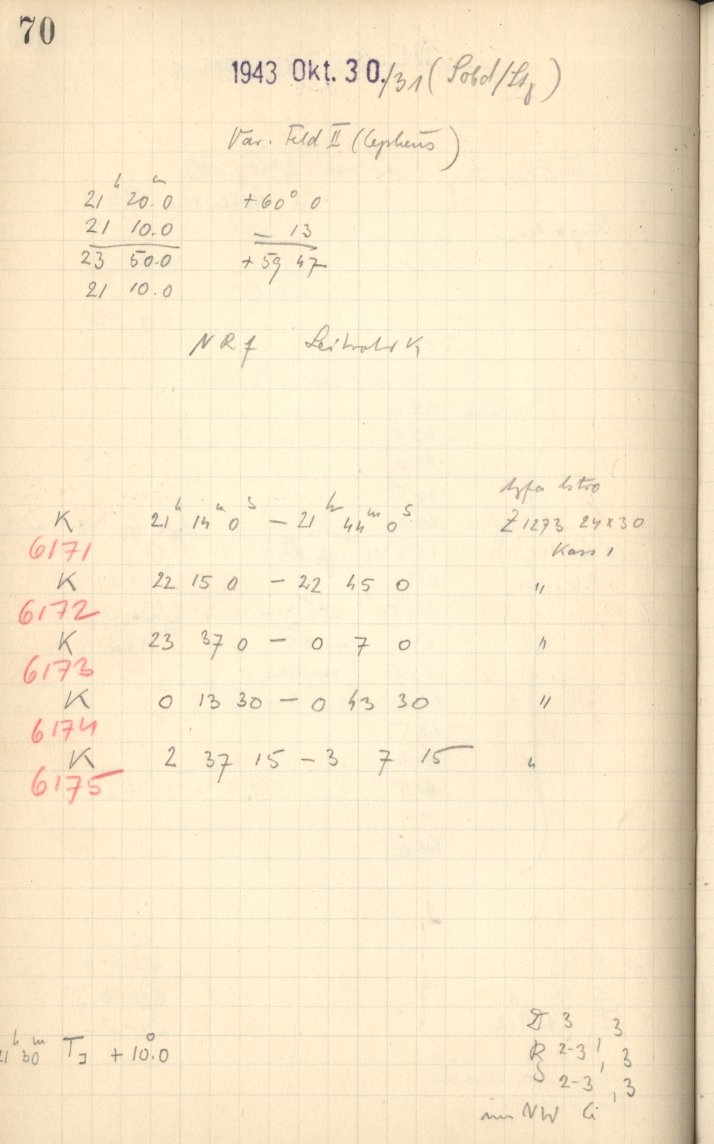 70
1943 Okt. 30./31 (Sobd/Stg)
Var. Feld II (Cepheus)
21h 20m.0 +60° 0
21 10.0 – 13
23 50.0 +59 47
21 10.0
NRf Leitrohr K
Agfa Astro
K 21h 14m 0s – 21h 44m 0s Z1273 24x30
6171 Kass 1
K 22 15 0 – 22 45 0 "
6172
K 23 37 0 – 0 7 0 "
6173
K 0 13 30 – 0 43 30 "
6174
K 2 37 15 – 3 7 15 "
6175
D 3 3
21h 30m TJ +10°.0 R 2-3, 3
S 2-3, 3
im NW Ci